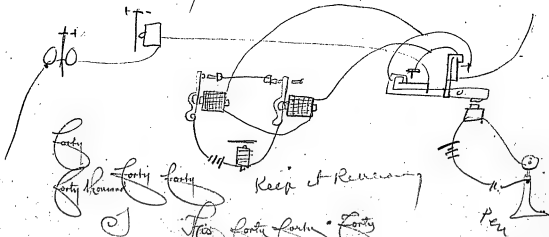 Forty
Forty thousand Forty Forty
Keep it Running
This forty forty Forty
Pen